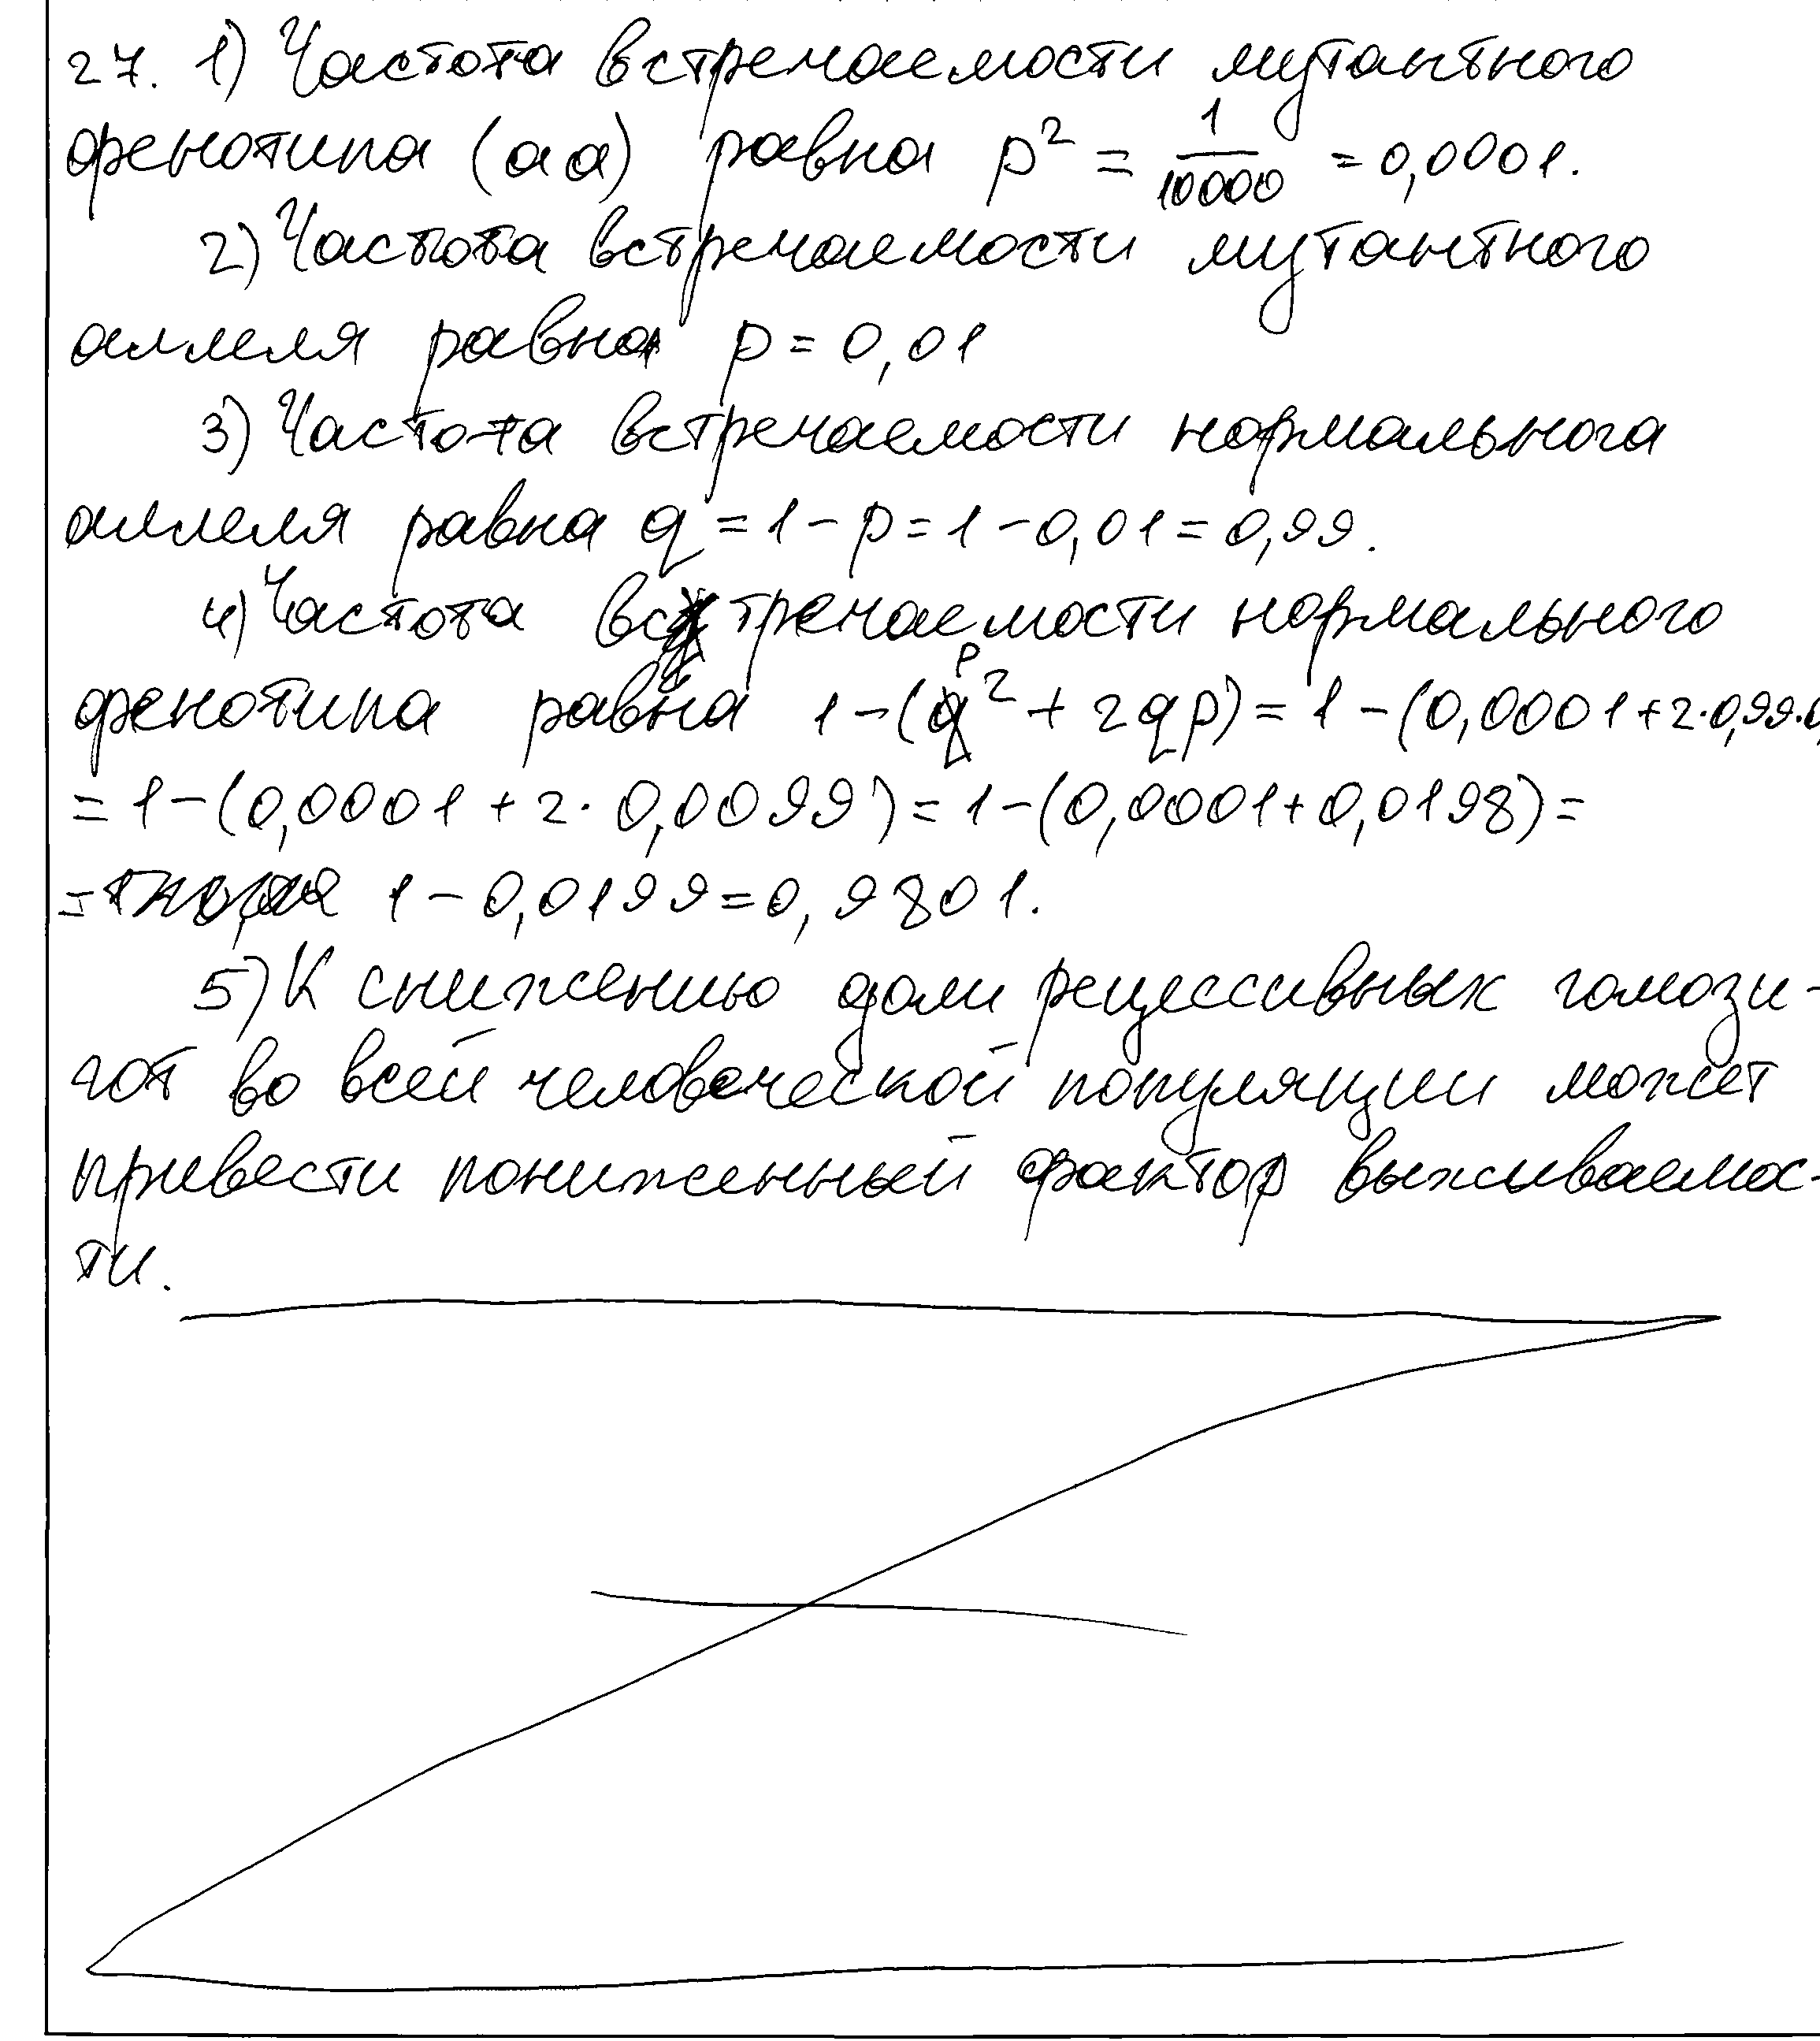 27. 1) Частота встречаемости мутантного
фенотипа (аа) равна p² = 1/10000 = 0,0001.
2) Частота встречаемости мутантного
аллеля равна p = 0,01
3) Частота встречаемости нормального
аллеля равна q = 1 - p = 1 - 0,01 = 0,99.
4) Частота встречаемости нормального
фенотипа равна 1 - (p² + 2qp) = 1 - (0,0001 + 2·0,99·0,
= 1 - (0,0001 + 2· 0,0099) = 1 - (0,0001 + 0,0198) =
= 1 - 0,0199 = 0,9801.
5) К снижению доли рецессивных гомози-
гот во всей человеческой популяции может
привести пониженный фактор выживаемос-
ти.